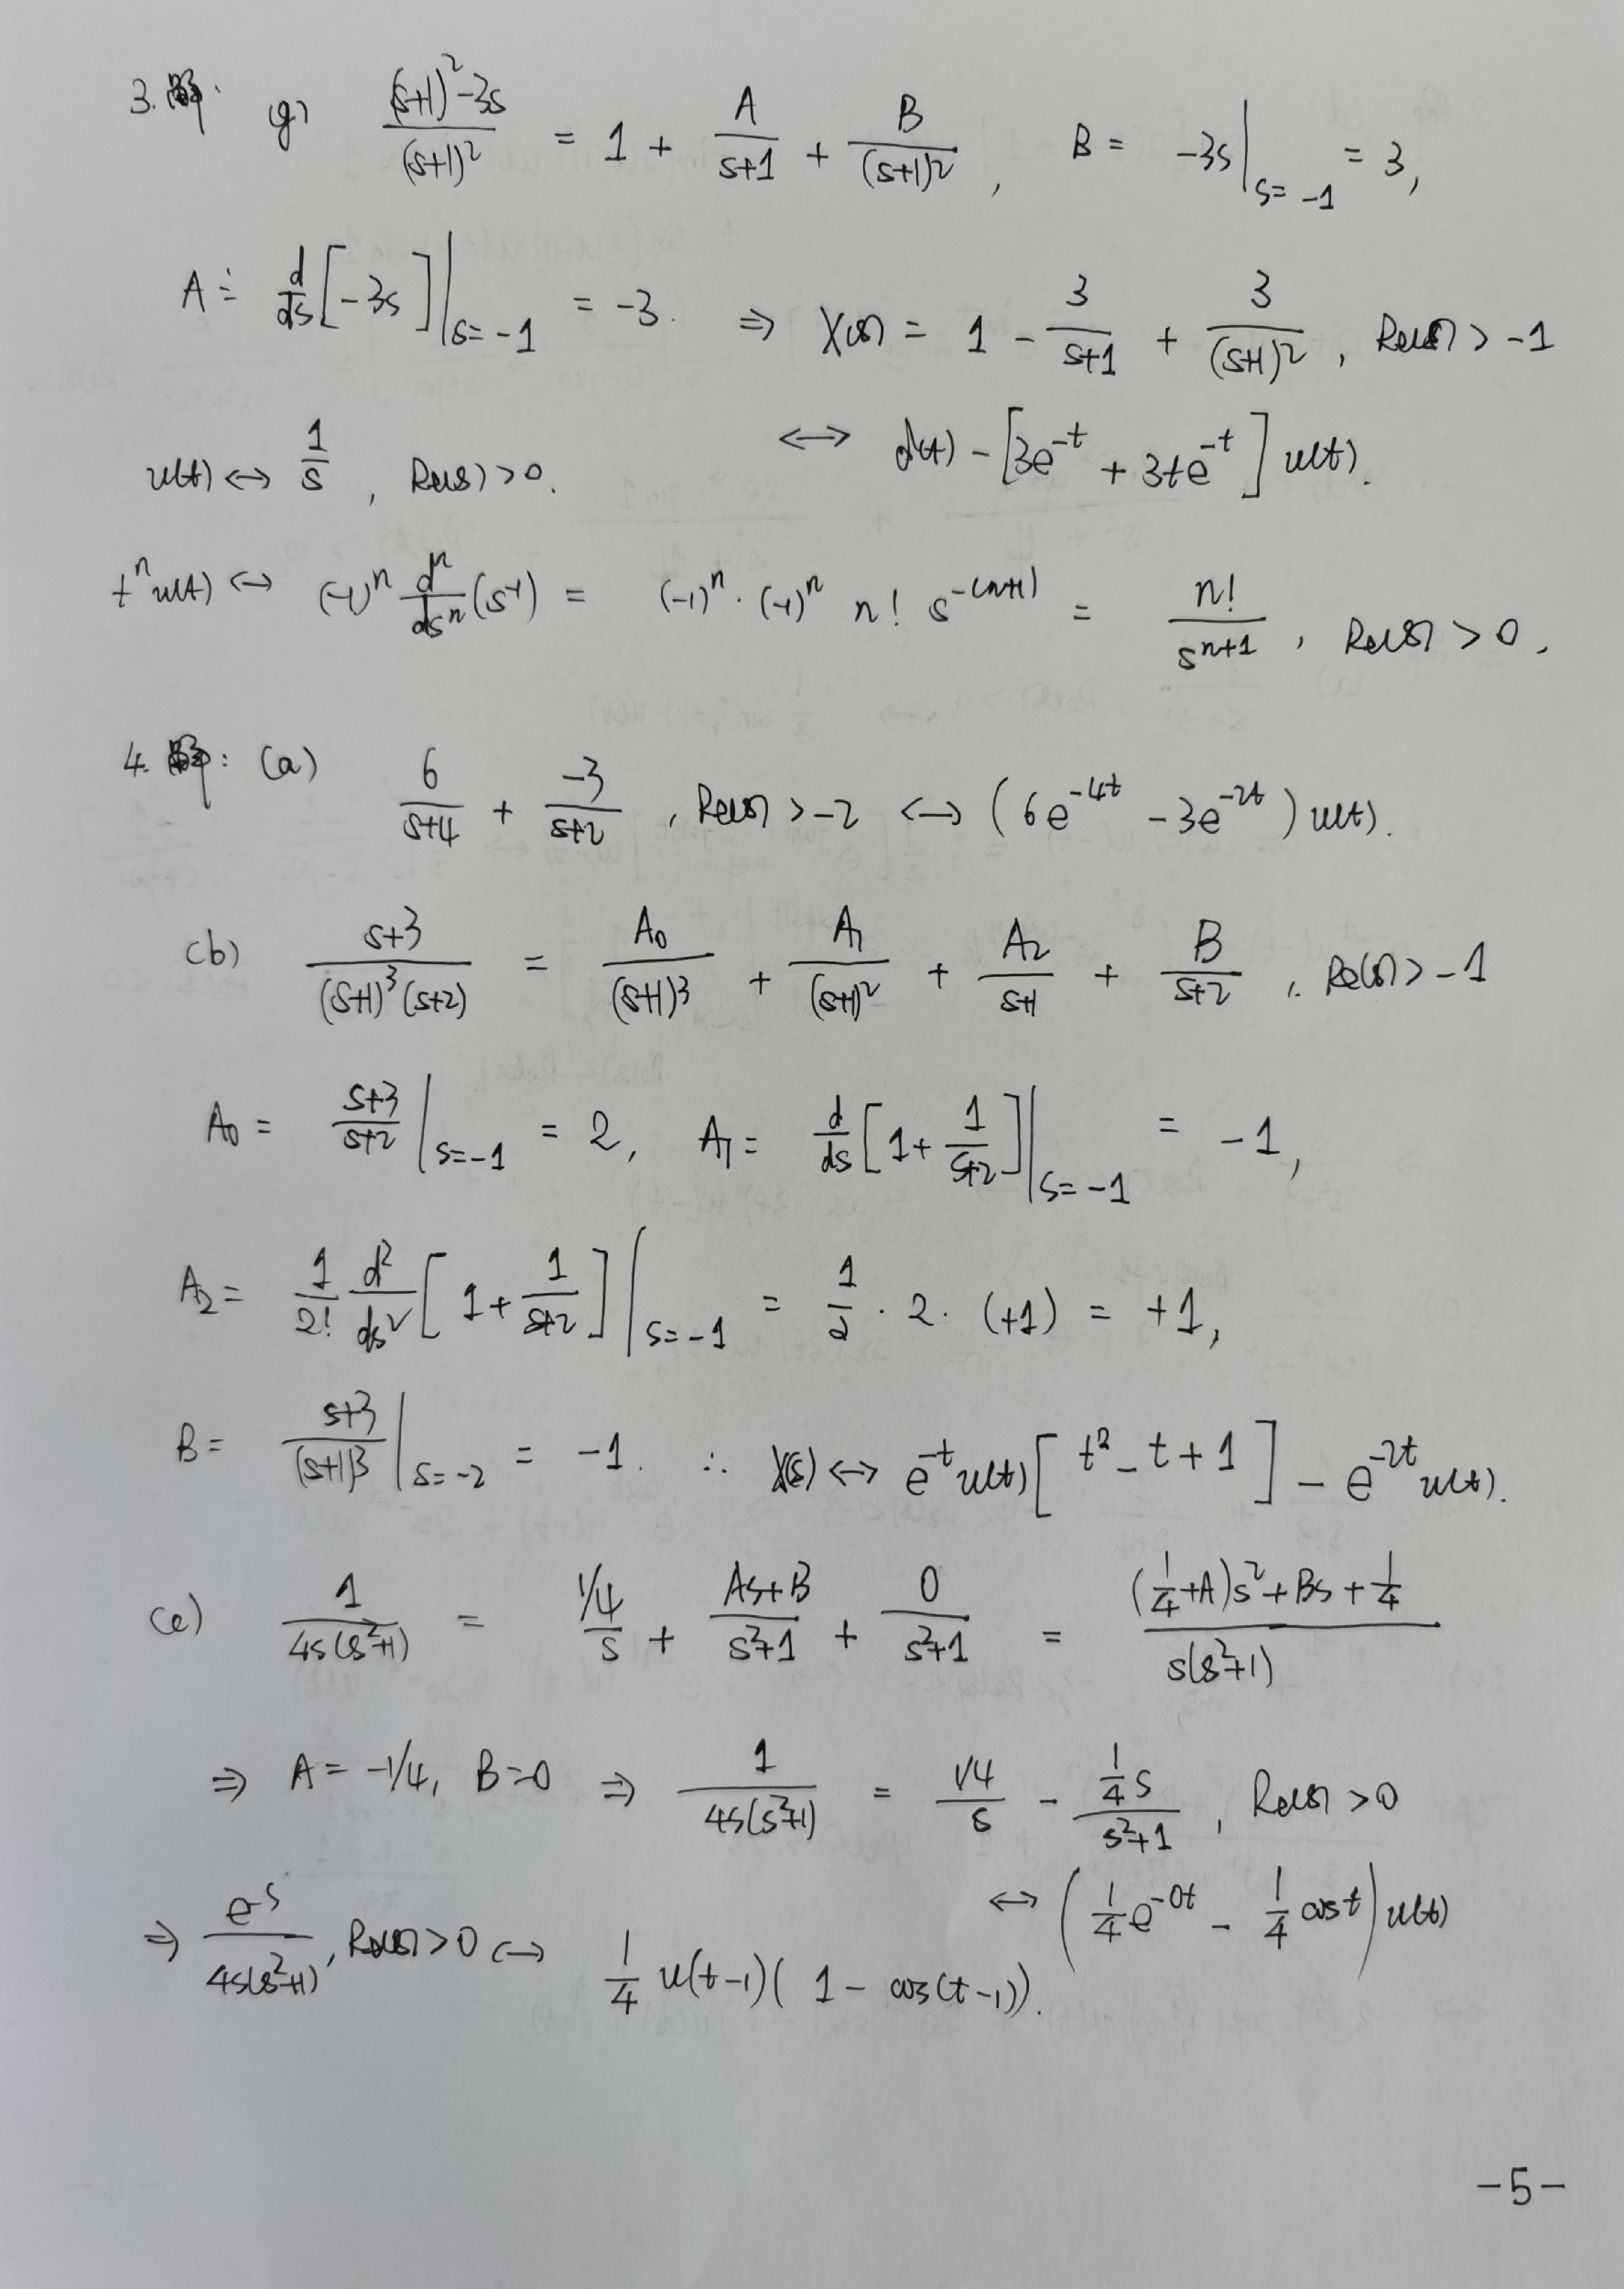 3. 解: g) \frac{(s+1)^2-3s}{(s+1)^2} = 1 + \frac{A}{s+1} + \frac{B}{(s+1)^2}, B = -3s|_{s=-1} = 3,
A = \frac{d}{ds}[-3s]|_{s=-1} = -3. ⇒ X(s) = 1 - \frac{3}{s+1} + \frac{3}{(s+1)^2}, Re(s) > -1
↔ δ(t) - [3e^{-t} + 3te^{-t}] u(t).
u(t) ↔ \frac{1}{s}, Re(s) > 0.
t^n u(t) ↔ (-1)^n \frac{d^n}{ds^n}(s^{-1}) = (-1)^n · (-1)^n n! s^{-(n+1)} = \frac{n!}{s^{n+1}}, Re(s) > 0.
4. 解: (a) \frac{6}{s+4} + \frac{-3}{s+2}, Re(s) > -2 ↔ (6e^{-4t} - 3e^{-2t}) u(t).
(b) \frac{s+3}{(s+1)^3(s+2)} = \frac{A_0}{(s+1)^3} + \frac{A_1}{(s+1)^2} + \frac{A_2}{s+1} + \frac{B}{s+2}, Re(s) > -1
A_0 = \frac{s+3}{s+2}|_{s=-1} = 2, A_1 = \frac{d}{ds}[1+\frac{1}{s+2}]|_{s=-1} = -1,
A_2 = \frac{1}{2!} \frac{d^2}{ds^2}[1+\frac{1}{s+2}]|_{s=-1} = \frac{1}{2} · 2 · (+1) = +1,
B = \frac{s+3}{(s+1)^3}|_{s=-2} = -1. ∴ X(s) ↔ e^{-t}u(t)[t^2 - t + 1] - e^{-2t}u(t).
(e) \frac{1}{4s(s^2+1)} = \frac{1/4}{s} + \frac{As+B}{s^2+1} + \frac{0}{s^2+1} = \frac{(\frac{1}{4}+A)s^2+Bs+\frac{1}{4}}{s(s^2+1)}
⇒ A = -1/4, B=0 ⇒ \frac{1}{4s(s^2+1)} = \frac{1/4}{s} - \frac{\frac{1}{4}s}{s^2+1}, Re(s) > 0
↔ (\frac{1}{4}e^{-0t} - \frac{1}{4}cost) u(t)
⇒ \frac{e^{-s}}{4s(s^2+1)}, Re(s) > 0 ↔ \frac{1}{4} u(t-1)(1 - cos(t-1)).
-5-